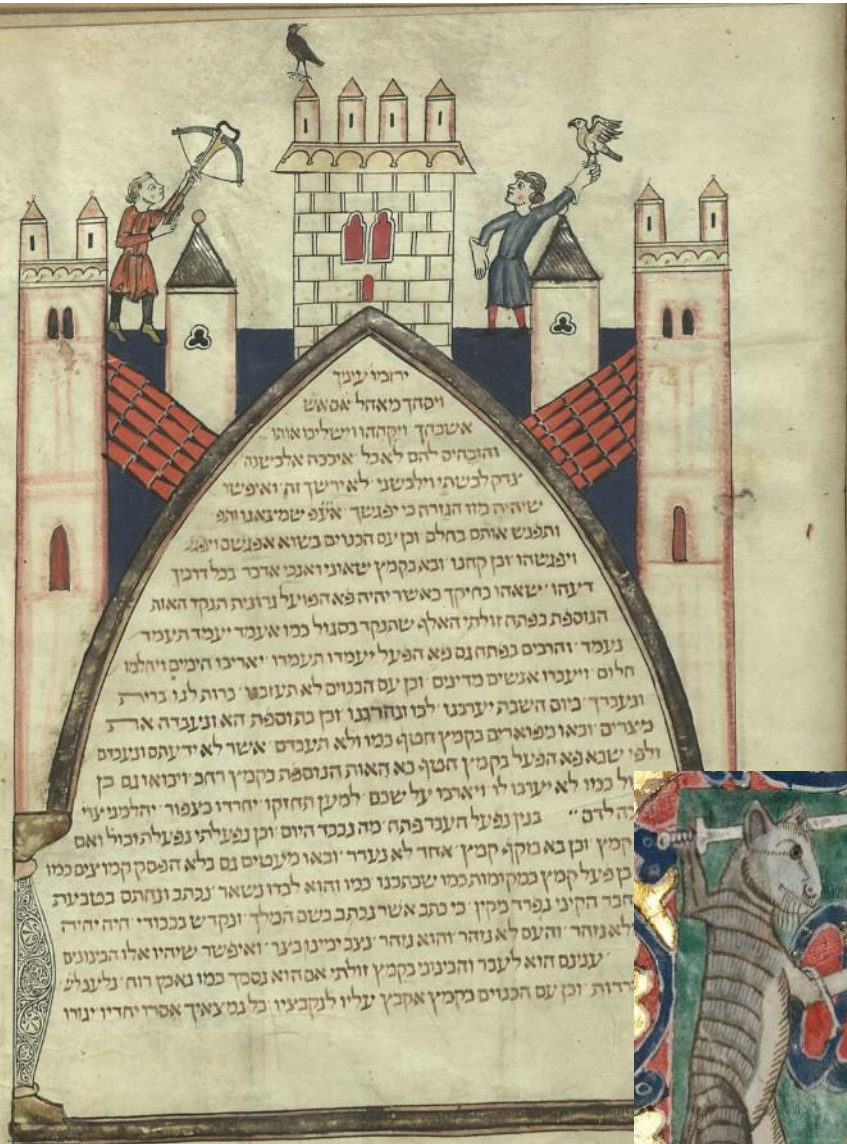 ירזמו עיניך
ויסחך מאהל אם אש
אשכחך ויקחהו וישליכו אותו
והזבחים להם לאכל איככה אלבישנה
צדק לבשתי וילבשני לא ירשך זה ואיפשר
שיהיה מזו הגזרה כי יפגשך אעפ שמצאנו ותפ
ותפגש אותם בחלם וכן עם הכנוים בשוא אפגשם ויפג
ויפגשהו וכן קחנו ובא בקמץ שאוני ואנכי אדבר בכל דרכיך
דיעהו שאהו בחיקך כאשר יהיה פא הפועל גרונית תנקד האות
הנוספת בפתח זולתי האלף שתנקד בסגול כמו אעמד יעמד תעמד
נעמד והרבים בפתח גם פא הפעל יעמדו תעמדו יאריכו הימים ויחלמו
חלום ויעברו אנשים מדינים וכן עם הכנוים לא תעזבנו כרות לנו ברית
ונעבדך ביום השבת יערכנו לכו ונהרגנו וכן בתוספת הא ונעבדה את
מיצרים ובאו מפוארים בקמץ חטף כמו ולא תעבדם אשר לא ידעתם ונעבדם
ולפי שבא פא הפעל בקמץ חטף בא האות הנוספת בקמץ רחב ויבואו גם כן
כמו לא יערבו לו ויארבו על שכם למען תחזקו יחרדו כצפור יהלמני צדי
לדם בנין נפעל העבר פתח מה נכבד היום וכן נפעלתי נפעלת וכול ואם
קמץ וכן בא מקף קמץ אחד לא נעדר ובאו מעטים גם בלא הפסק קמוצים כמו
כן פעל קמץ במקומות כמו שכתבנו כמו והוא לבדו נשאר נכתב ונחתם בטבעת
חבר הקיני נפרד מקין כי כתב אשר נכתב בשם המלך ונקדש בכבודי היה יהיה
לא נזהר והעם לא נזהר והוא נזהר נצב ימינו כצר ואיפשר שיהיו אלו הבינונים
ענינם הוא לעבר והבינוני בקמץ זולתי אם הוא נסמך כמו נאמן רוח נלעג לש
רדות וכן עם הכנוים בקמץ אקבץ עליו לנקבציו כל נמצאיך אסרו יחדיו